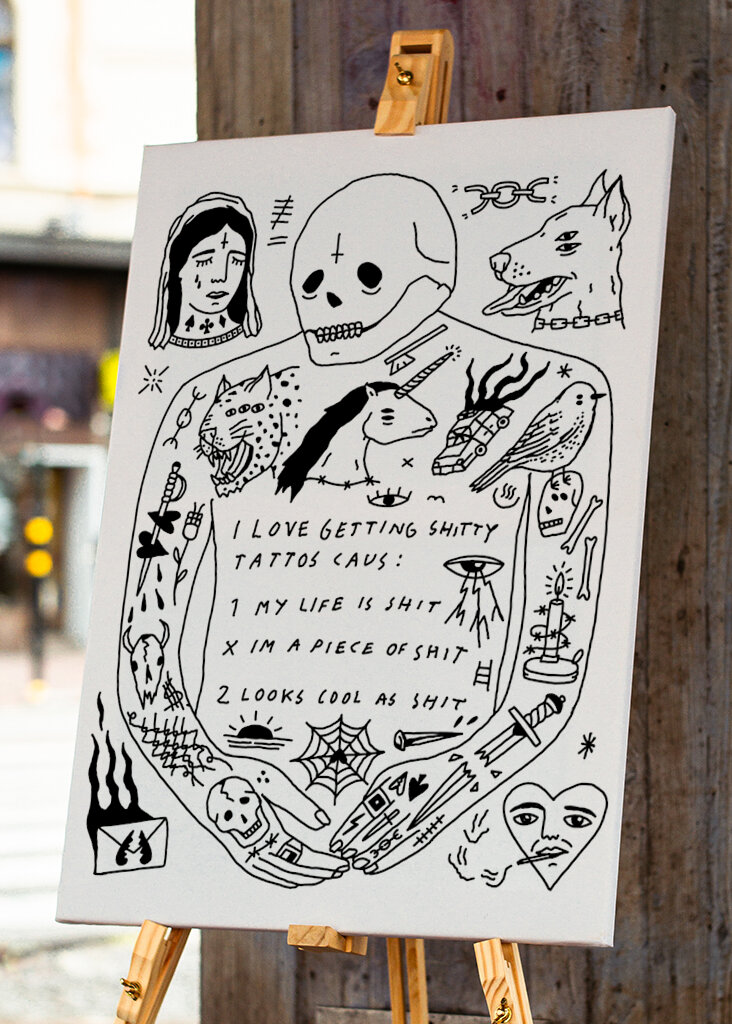 I LOVE GETTING SHITTY
TATTOS CAUS:
1 MY LIFE IS SHIT
X IM A PIECE OF SHIT
2 LOOKS COOL AS SHIT